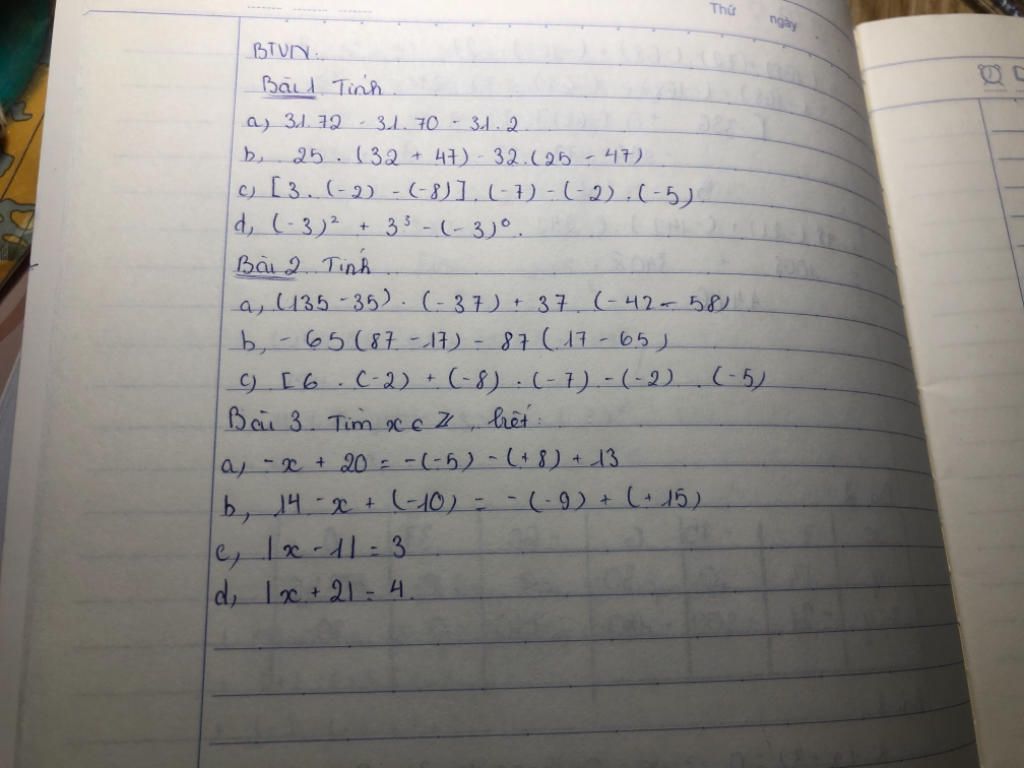 Thứ ngày
BTVN:
Bài 1 Tính
a, 31.72 - 31.70 - 31.2
b, 25 . (32 + 47) - 32.(25 - 47)
c, [3 . (-2) - (-8)] . (-7) - (-2) . (-5)
d, (-3)² + 3³ - (-3)⁰.
Bài 2 Tính
a, (135 - 35) . (-37) + 37 . (-42 - 58)
b, - 65(87 - 17) - 87(17 - 65)
c, [6 . (-2) + (-8) . (-7) - (-2) . (-5)
Bài 3. Tìm x ∈ Z, biết:
a, -x + 20 = -(-5) - (+8) + 13
b, 14 - x + (-10) = -(-9) + (+15)
c, |x - 1| = 3
d, |x + 2| = 4.